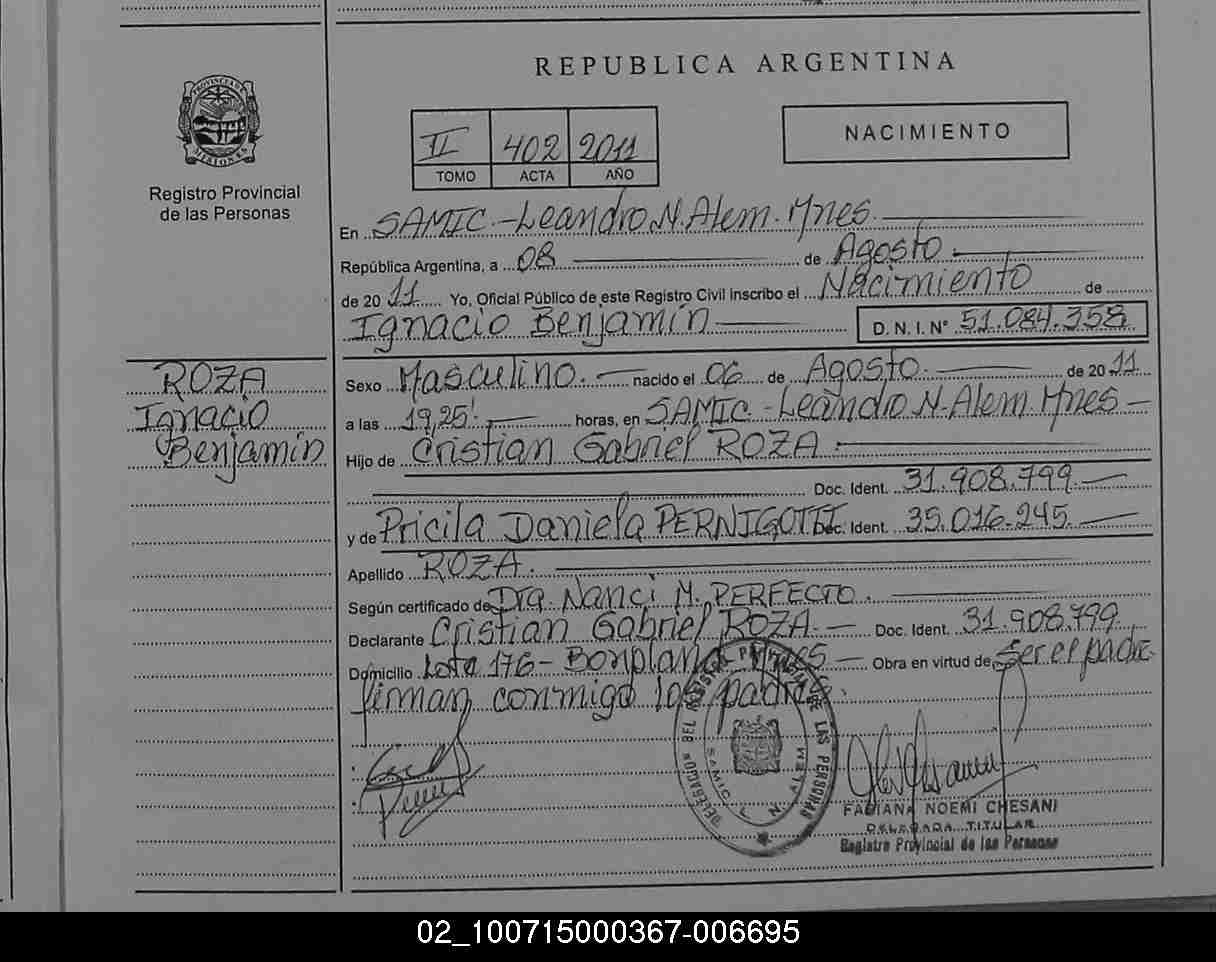 REPUBLICA ARGENTINA
PROVINCIA DE MISIONES
Registro Provincial
de las Personas
II 402 2011
TOMO ACTA AÑO
NACIMIENTO
En SAMIC.-Leandro N. Alem. Mnes.
República Argentina, a 08 de Agosto
de 2011 Yo, Oficial Público de este Registro Civil inscribo el Nacimiento de
Ignacio Benjamín D.N.I. N° 51.084.358
ROZA
Ignacio
Benjamín
Sexo Masculino. nacido el 06 de Agosto. de 2011.
a las 19,25' horas, en SAMIC.-Leandro N. Alem. Mnes
Hijo de Cristian Gabriel ROZA.
Doc. Ident. 31.908.799.
y de Pricila Daniela PERNIGOTTI Doc. Ident. 35.016.245.
Apellido ROZA.
Según certificado de Dra. Nanci M. PERFECTO.
Declarante Cristian Gabriel ROZA. Doc. Ident. 31.908.799.
Domicilio Lote 176- Bonpland- Mnes Obra en virtud de Ser el padre-
firman conmigo los padres.
DELEGACION DEL REGISTRO PROVINCIAL DE LAS PERSONAS
SAMIC L. N. ALEM
FABIANA NOEMI CHESANI
DELEGADA TITULAR
Registro Provincial de las Personas
02_100715000367-006695